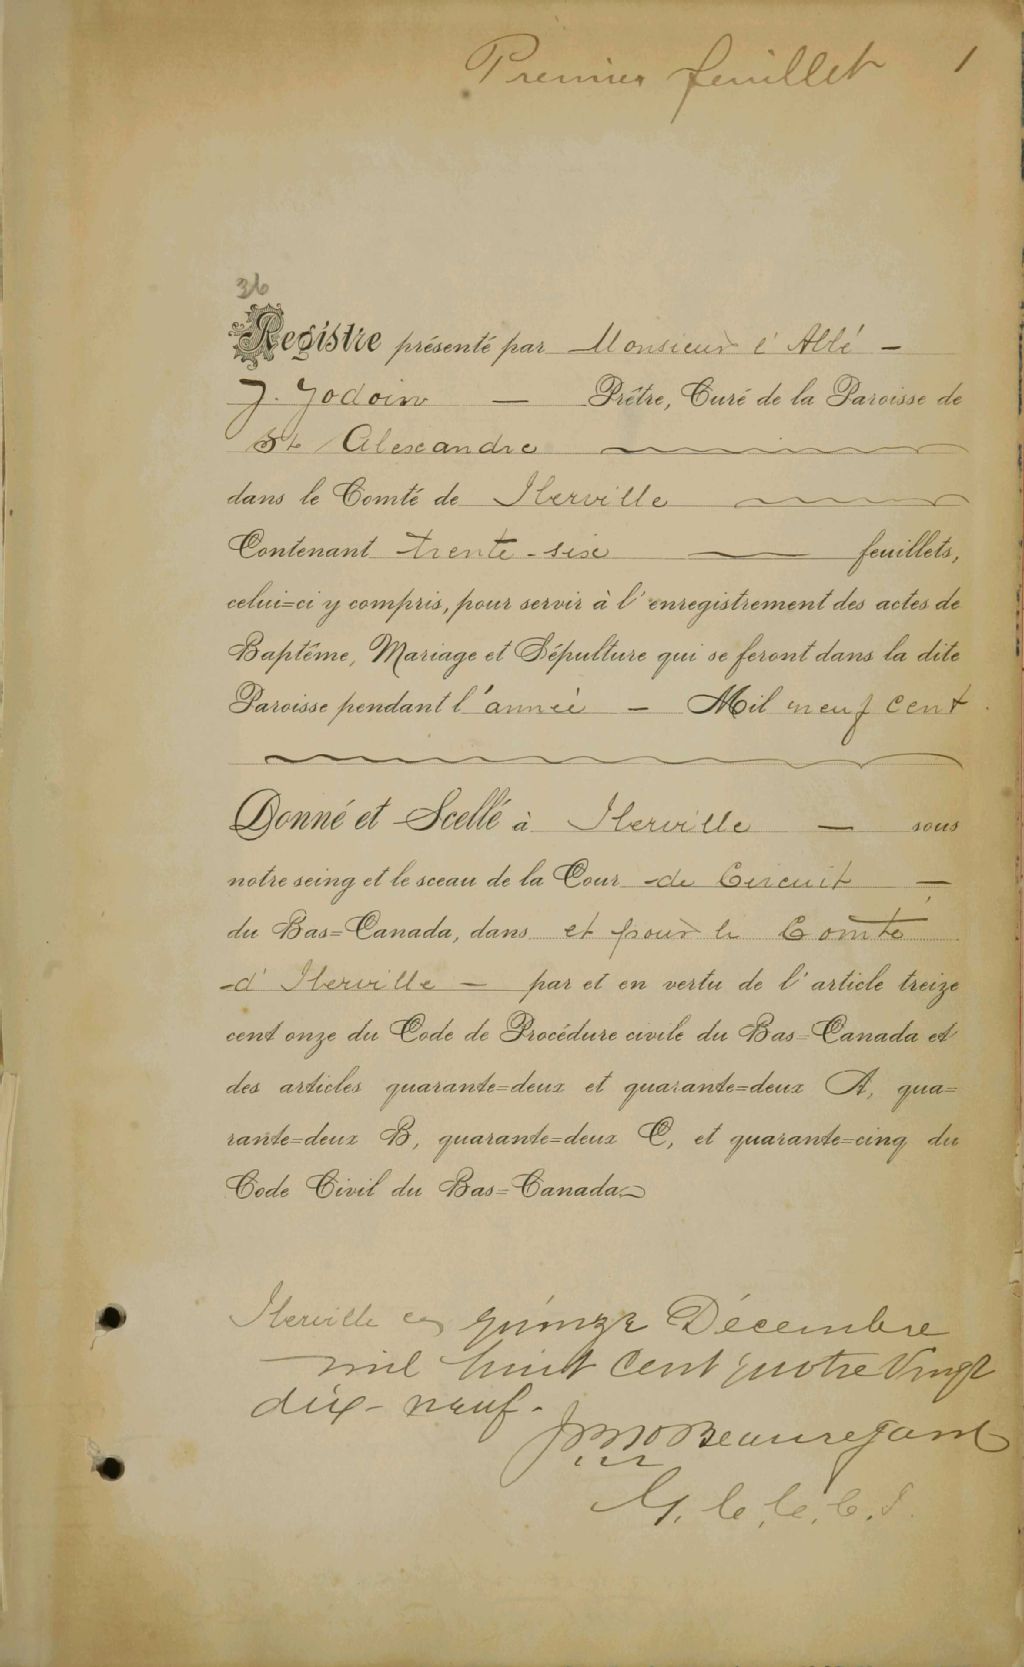 Premier feuillet 1
36
Registre présenté par Monsieur l'Abbé —
J. Jodoin — Prêtre, Curé de la Paroisse de
St Alexandre
dans le Comté de Iberville
Contenant trente-six — feuillets,
celui=ci y compris, pour servir à l'enregistrement des actes de
Baptême, Mariage et Sépulture qui se feront dans la dite
Paroisse pendant l'année — Mil neuf cent
Donné et Scellé à Iberville — sous
notre seing et le sceau de la Cour de Circuit —
du Bas=Canada, dans et pour le Comté
d'Iberville — par et en vertu de l'article treize
cent onze du Code de Procédure civile du Bas=Canada et
des articles quarante=deux et quarante=deux A, qua=
rante=deux B, quarante=deux C, et quarante=cinq du
Code Civil du Bas=Canada.
Iberville ce quinze Décembre
mil huit cent quatre Vingt
dix-neuf.
Beauregard
G. C. C. C. I.